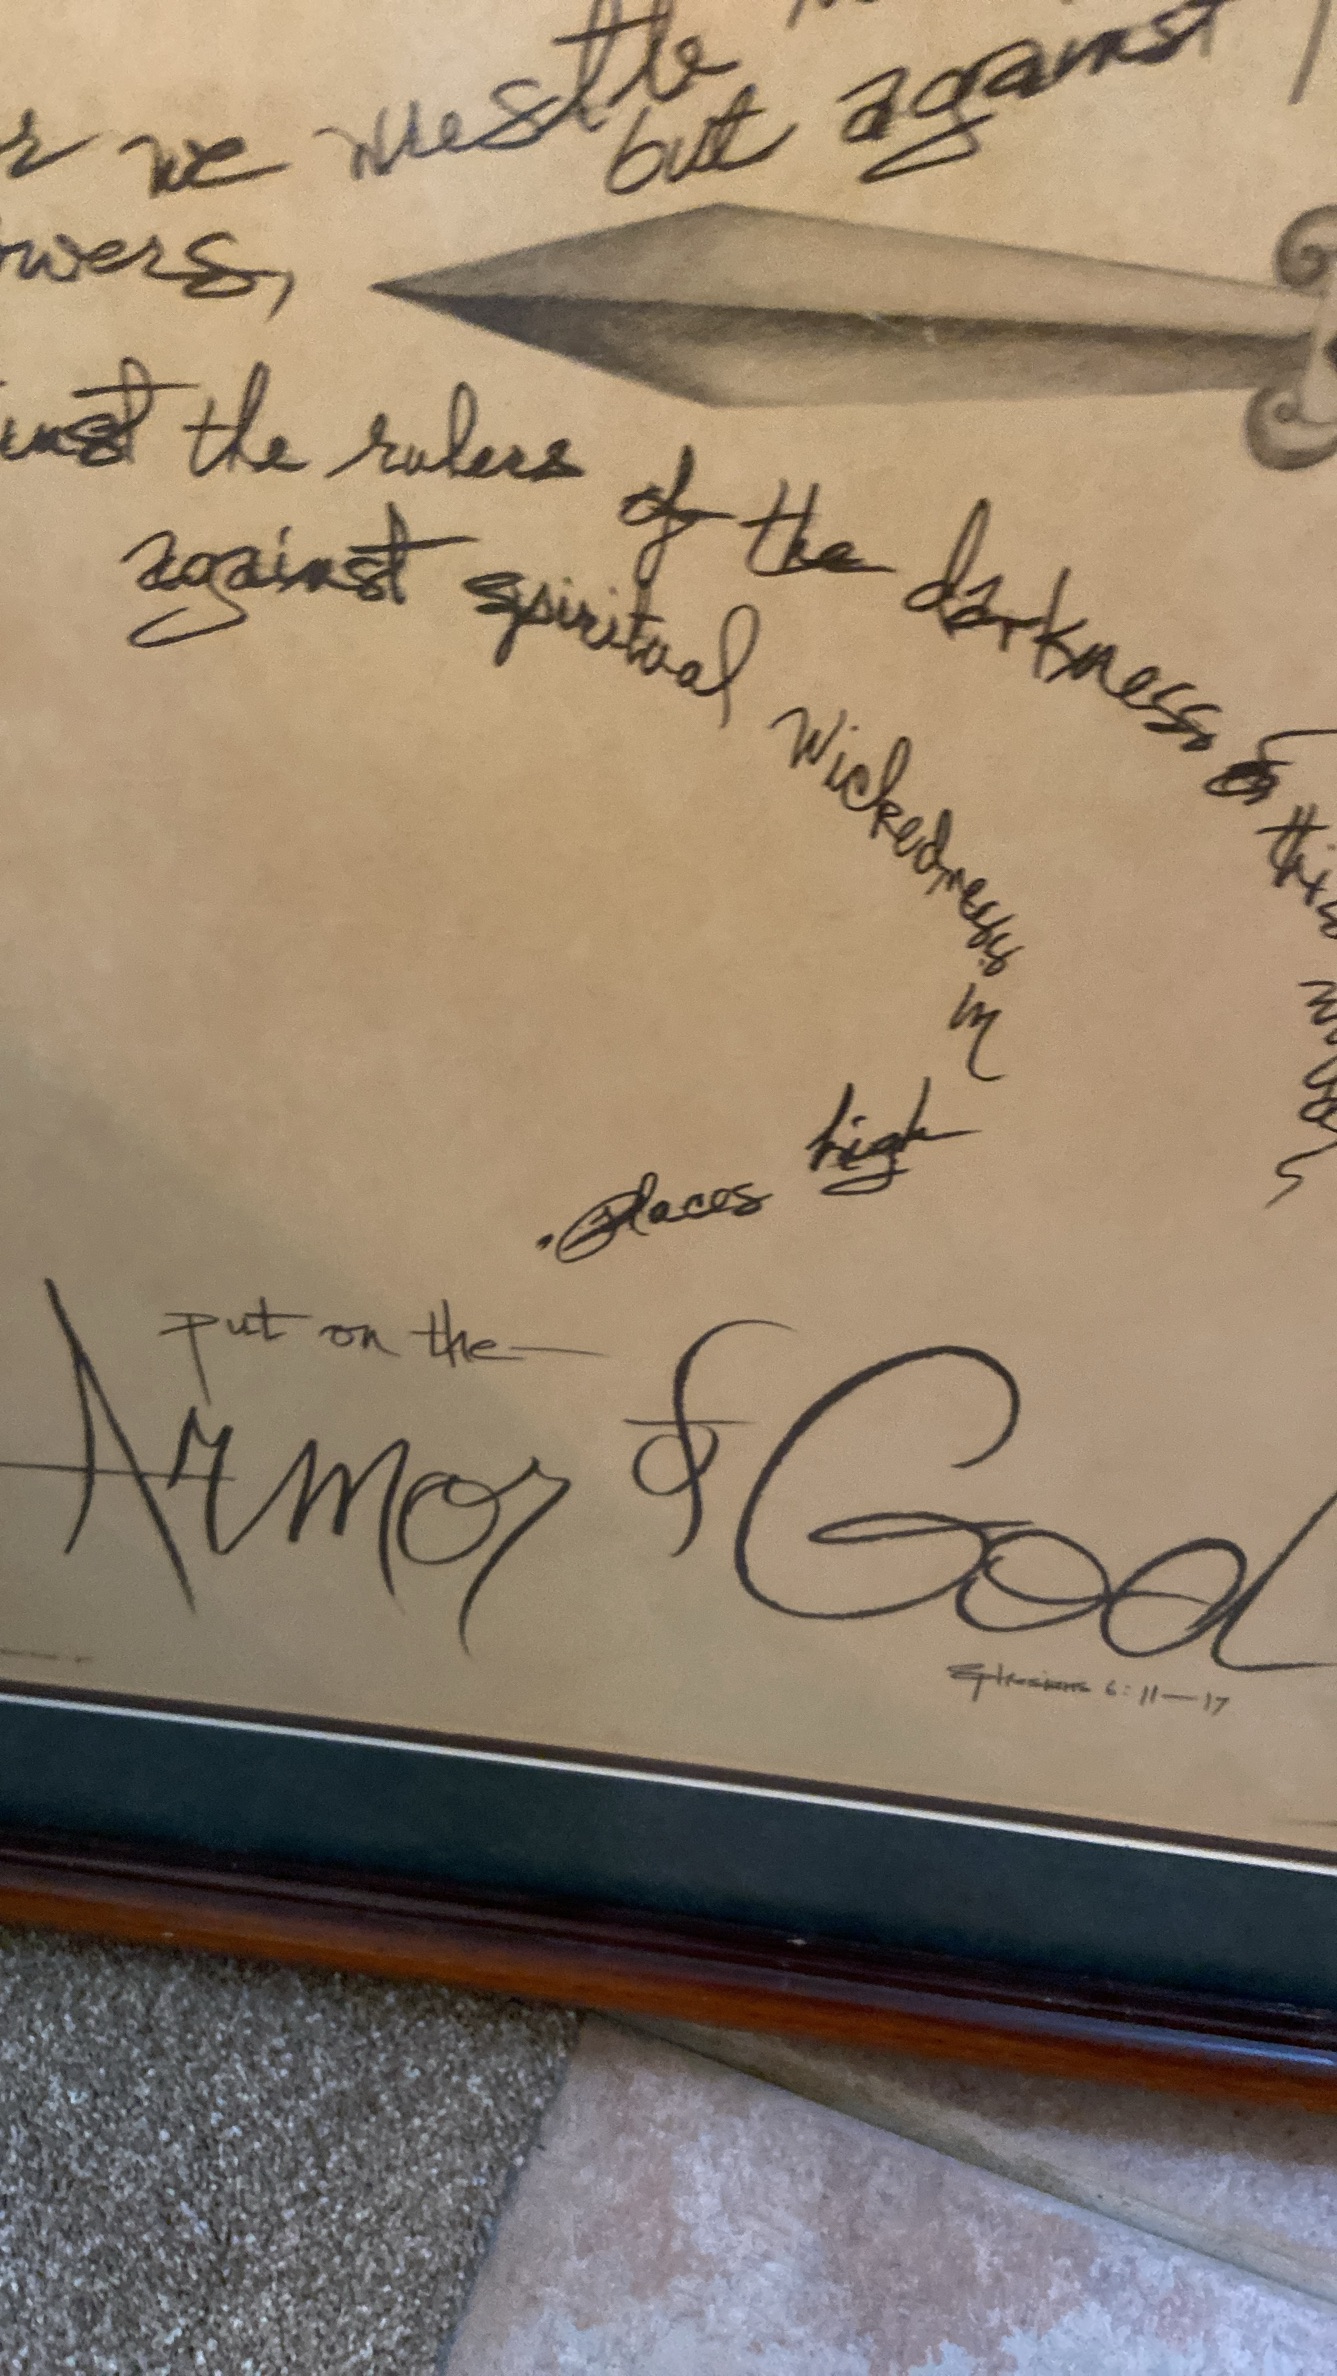 we wrestle
but against
owers,
inst the rulers of the darkness of this world
against spiritual Wickedness in
high
places.
put on the
Armor of God
Ephesians 6:11-17